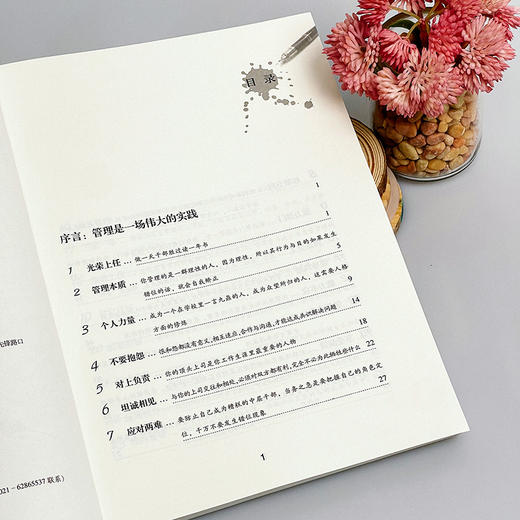 目录
序言：管理是一场伟大的实践 1
1 光荣上任 做一天干部胜过读一年书 1
2 管理本质 你管理的是一群理性的人，因为理性，所以其行为与目的如果发生
错位的话，就会自我矫正 5
3 个人力量 成为一个在学校里一言九鼎的人，成为众望所归的人，这需要人格
方面的修炼 9
4 不要抱怨 恨和怨都没有意义，相互适应，合作与沟通，才能达成共识解决问题 14
5 对上负责 你的顶头上司是你工作生涯里最重要的人物 18
6 坦诚相见 与你的上司交往和相处，必须对双方都有利，完全不必为此牺牲些什么 22
7 应对两难 要防止自己成为糟糕的中层干部，当务之急是要把握自己的角色定
位，千万不要发生错位现象 27
1
先锋路口
021－62865537 联系）